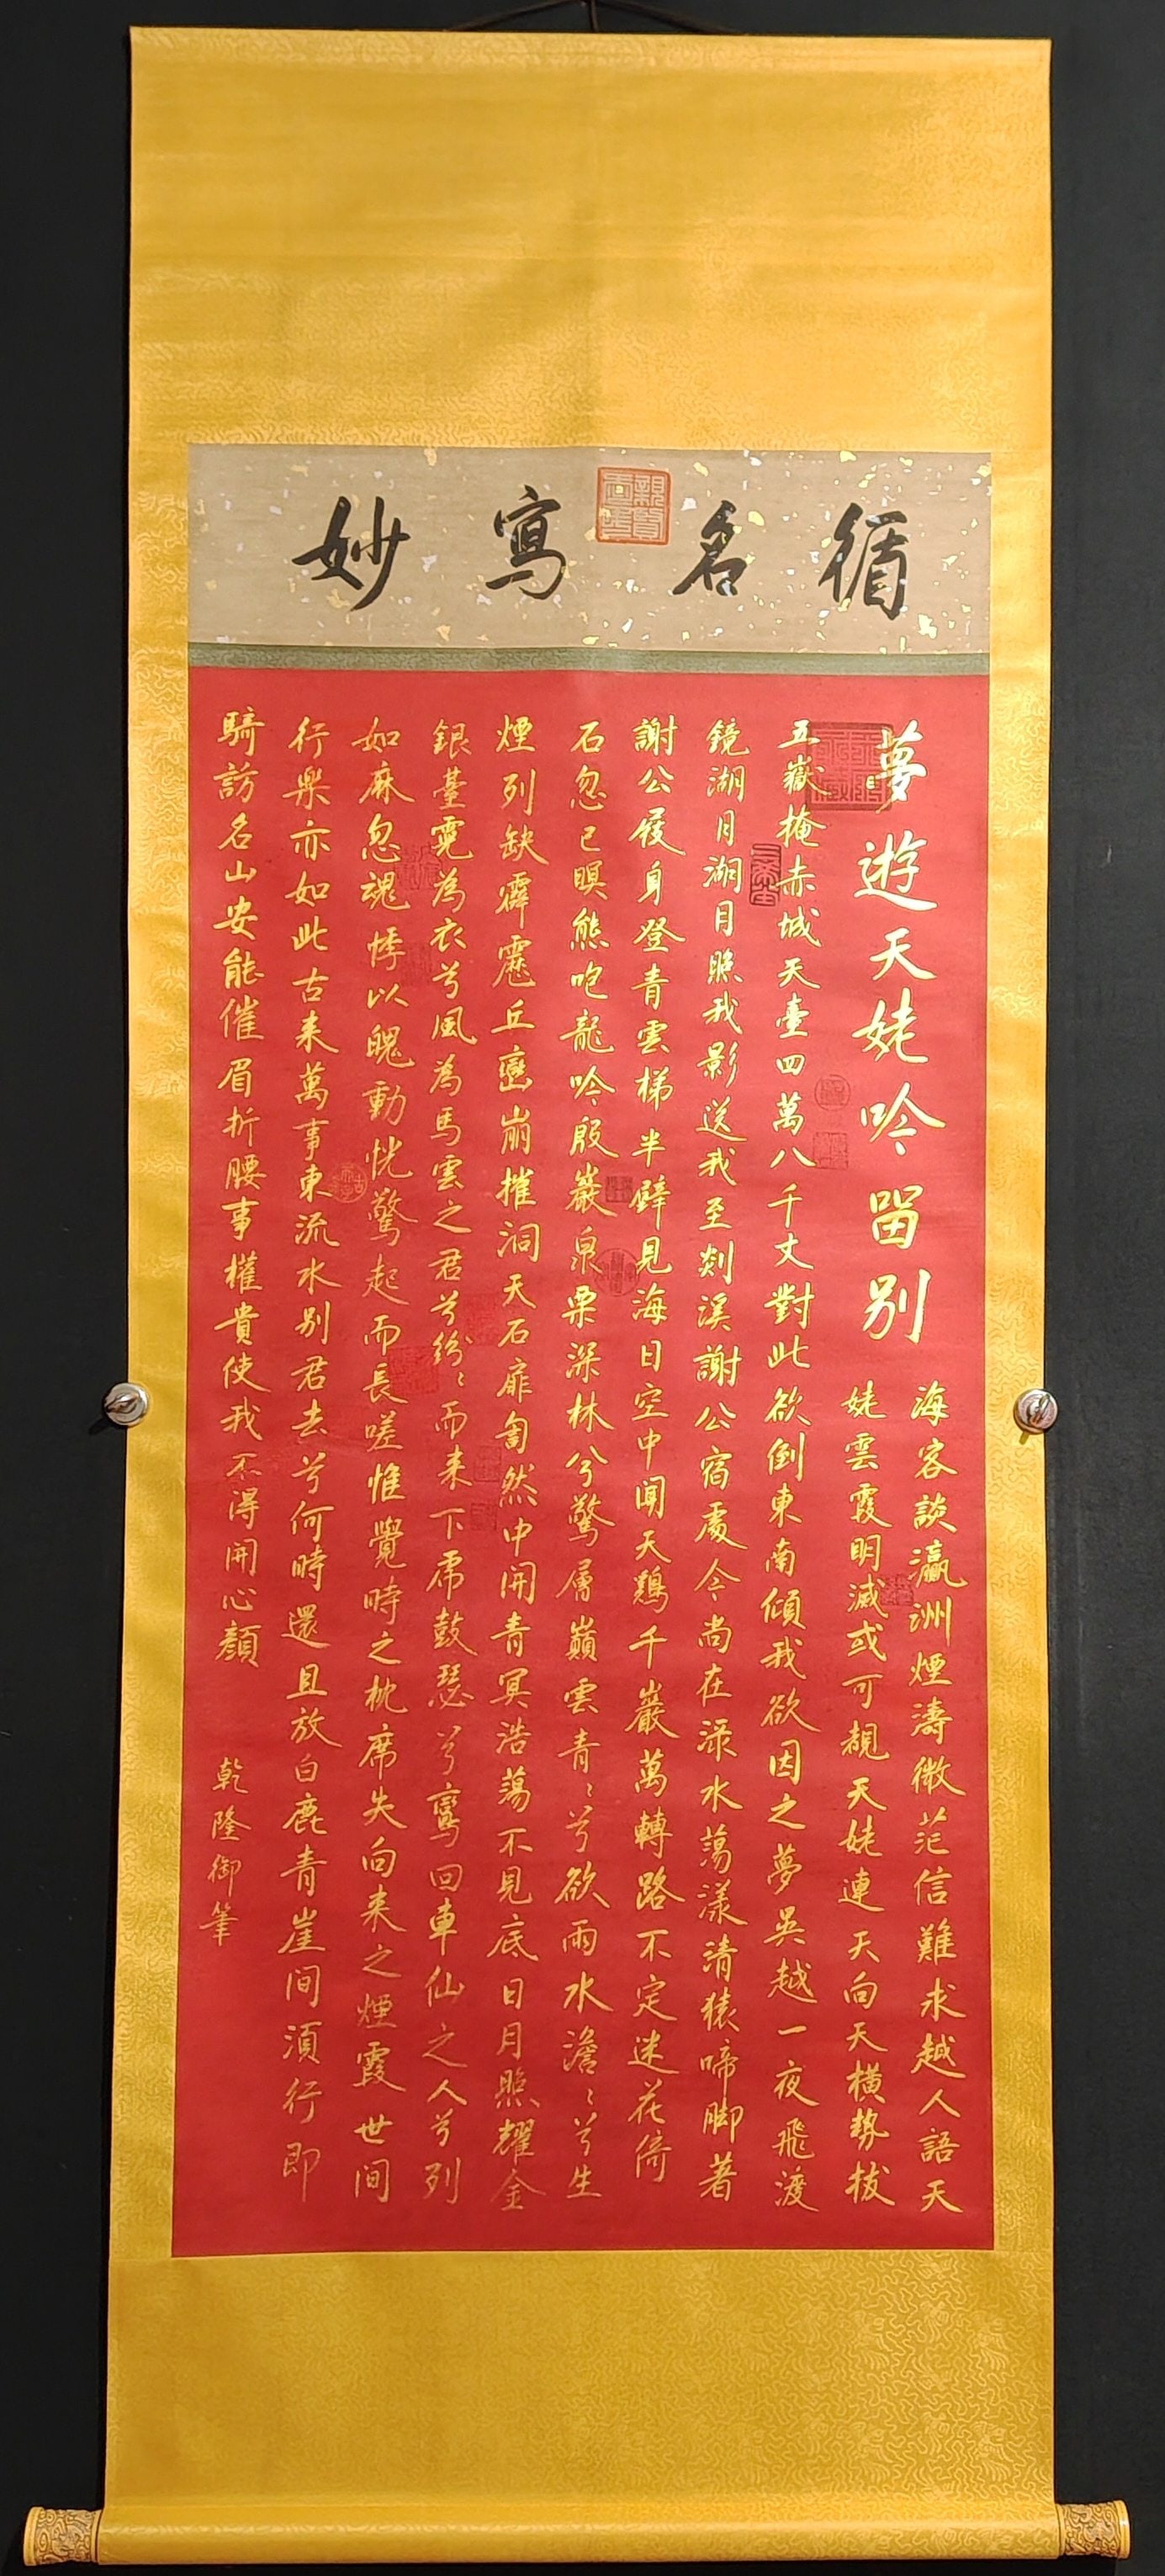 循名寫妙
夢遊天姥吟留別
海客談瀛洲煙濤微茫信難求越人語天
姥雲霞明滅或可覩天姥連天向天橫勢拔
五嶽掩赤城天臺四萬八千丈對此欲倒東南傾我欲因之夢吳越一夜飛渡
鏡湖月湖月照我影送我至剡溪謝公宿處今尚在淥水蕩漾清猿啼腳著
謝公屐身登青雲梯半壁見海日空中聞天鷄千巖萬轉路不定迷花倚
石忽已暝熊咆龍吟殷巖泉栗深林兮驚層巔雲青〻兮欲雨水澹〻兮生
煙列缺霹靂丘巒崩摧洞天石扉訇然中開青冥浩蕩不見底日月照耀金
銀臺霓為衣兮風為馬雲之君兮紛〻而来下虎鼓瑟兮鸞回車仙之人兮列
如麻忽魂悸以魄動恍驚起而長嗟惟覺時之枕席失向来之煙霞世間
行樂亦如此古来萬事東流水別君去兮何時還且放白鹿青崖间須行即
騎訪名山安能催眉折腰事權貴使我不得開心顏
乾隆御筆